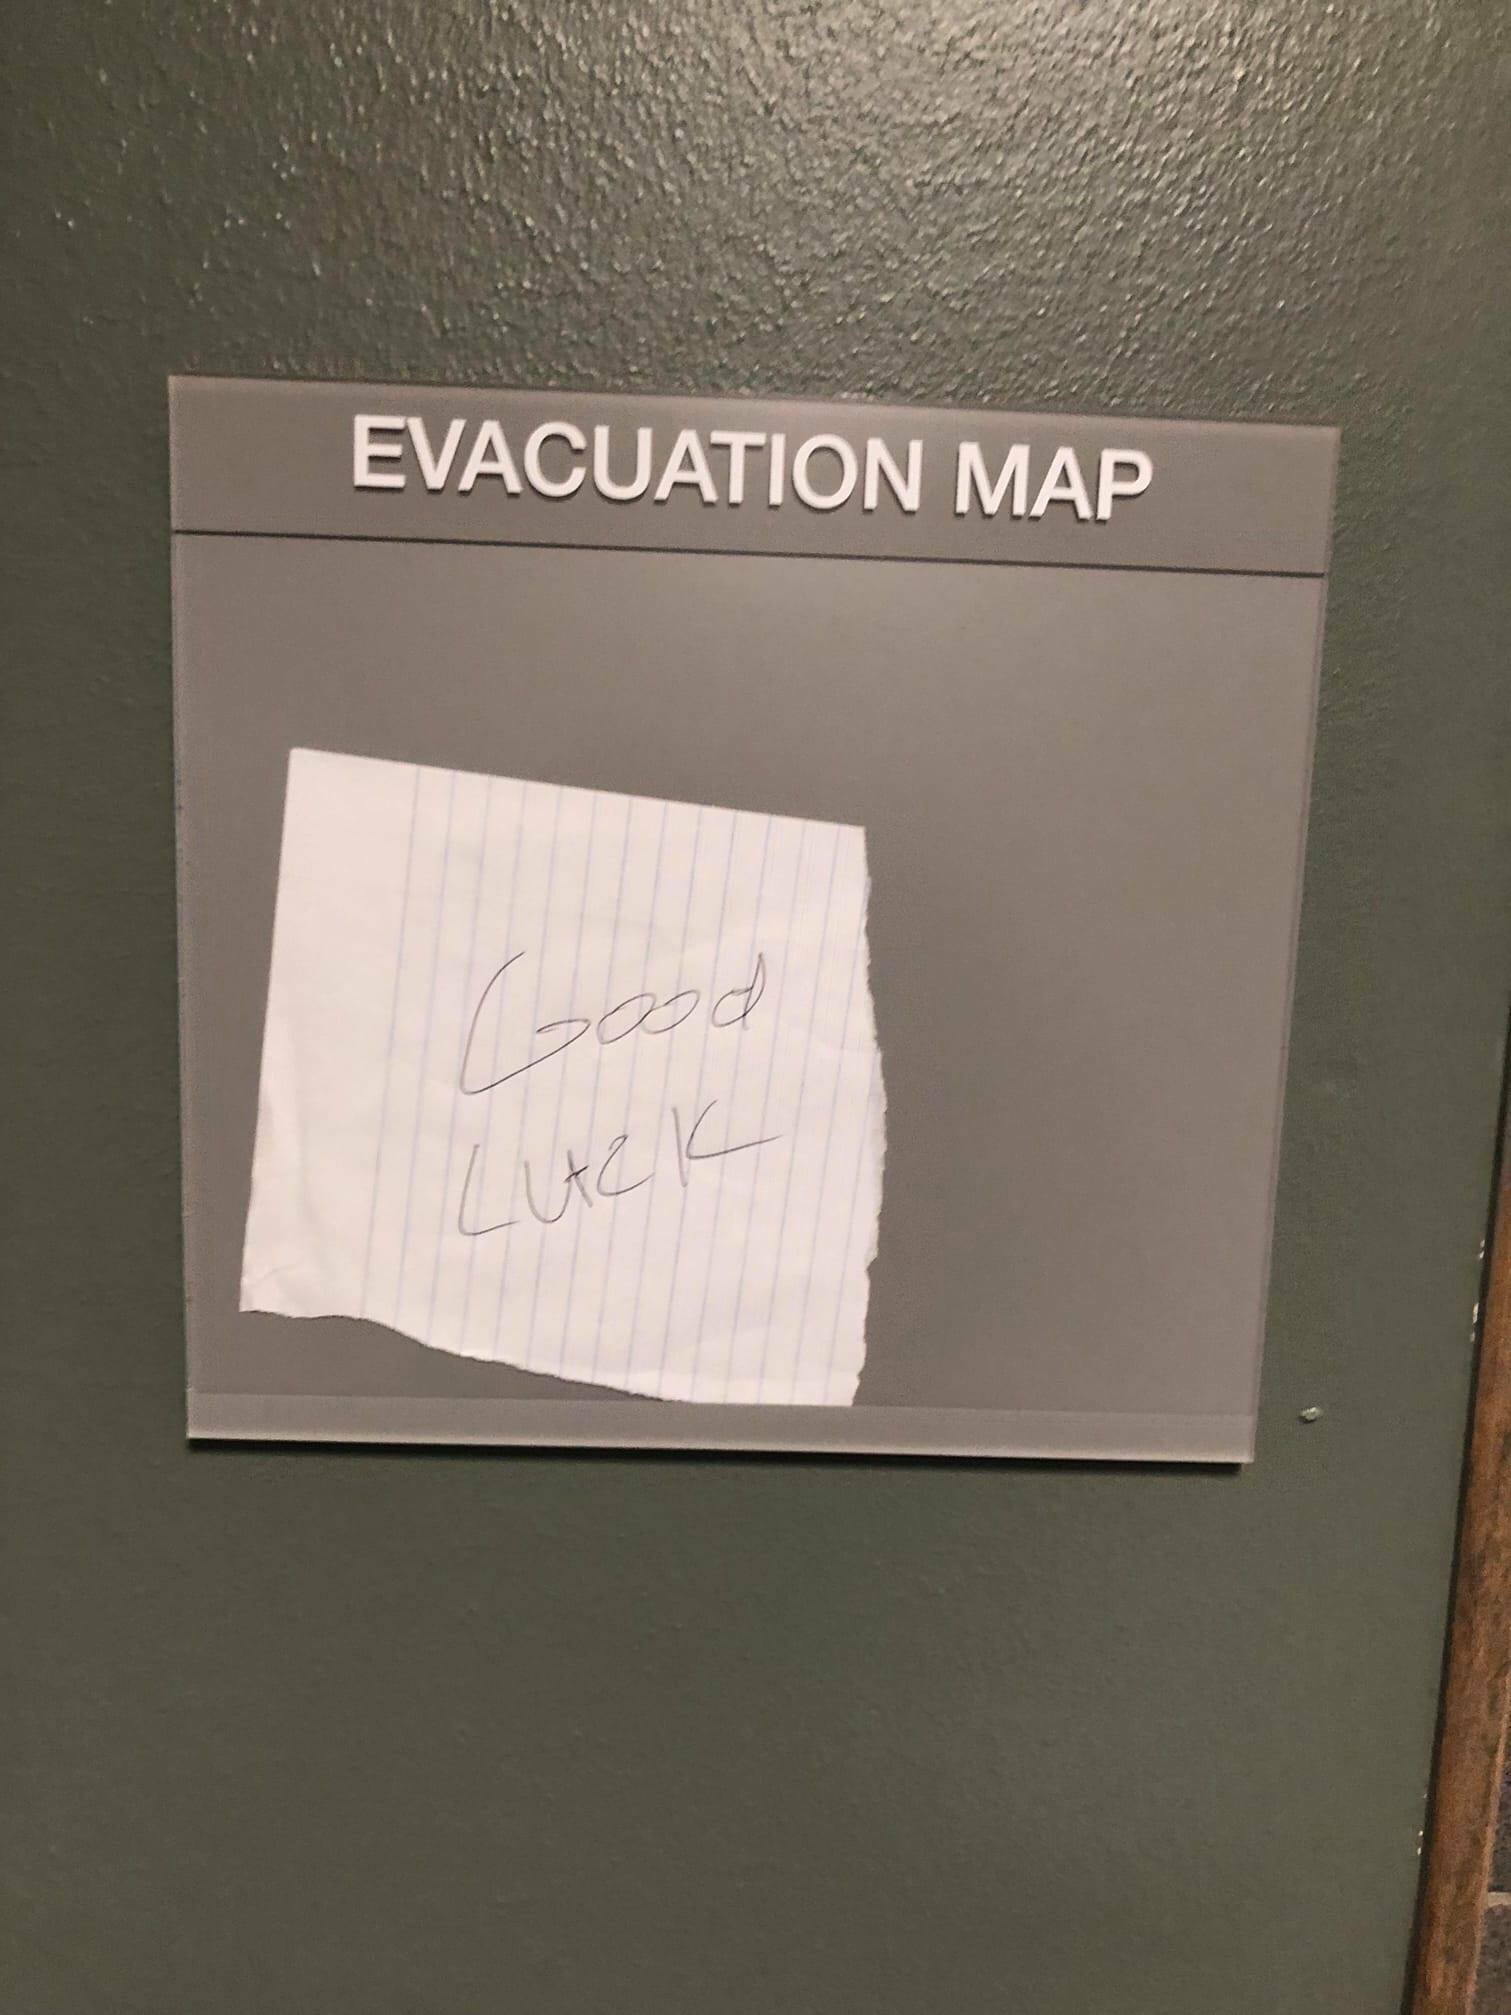 EVACUATION MAP
Good
LUCK